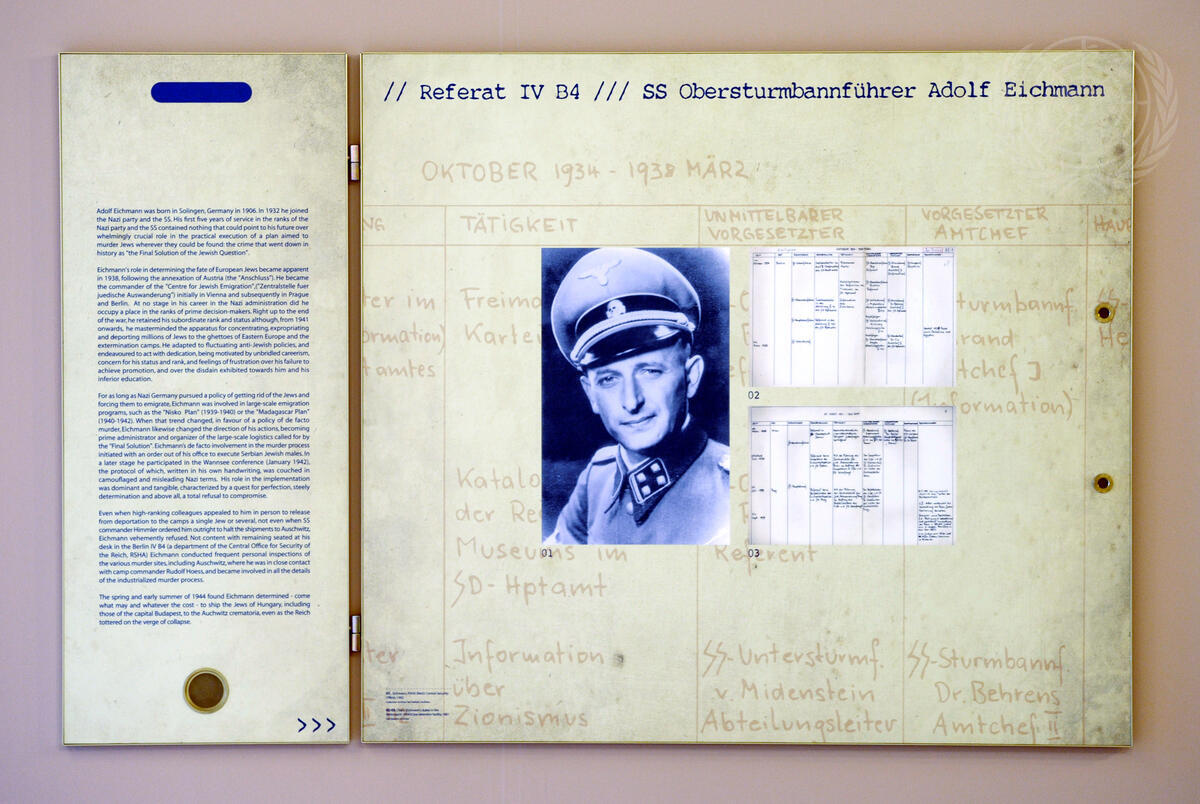 Adolf Eichmann was born in Solingen, Germany in 1906. In 1932 he joined
the Nazi party and the SS. His first five years of service in the ranks of the
Nazi party and the SS contained nothing that could point to his future over
whelmingly crucial role in the practical execution of a plan aimed to
murder Jews wherever they could be found: the crime that went down in
history as "the Final Solution of the Jewish Question".
Eichmann's role in determining the fate of European Jews became apparent
in 1938, following the annexation of Austria (the "Anschluss"). He became
the commander of the "Centre for Jewish Emigration",("Zentralstelle fuer
juedische Auswanderung") initially in Vienna and subsequently in Prague
and Berlin. At no stage in his career in the Nazi administration did he
occupy a place in the ranks of prime decision-makers. Right up to the end
of the war, he retained his subordinate rank and status although, from 1941
onwards, he masterminded the apparatus for concentrating, expropriating
and deporting millions of Jews to the ghettoes of Eastern Europe and the
extermination camps. He adapted to fluctuating anti-Jewish policies, and
endeavoured to act with dedication, being motivated by unbridled careerism,
concern for his status and rank, and feelings of frustration over his failure to
achieve promotion, and over the disdain exhibited towards him and his
inferior education.
For as long as Nazi Germany pursued a policy of getting rid of the Jews and
forcing them to emigrate, Eichmann was involved in large-scale emigration
programs, such as the "Nisko Plan" (1939-1940) or the "Madagascar Plan"
(1940-1942). When that trend changed, in favour of a policy of de facto
murder, Eichmann likewise changed the direction of his actions, becoming
prime administrator and organizer of the large-scale logistics called for by
the "Final Solution". Eichmann's de facto involvement in the murder process
initiated with an order out of his office to execute Serbian Jewish males. In
a later stage he participated in the Wannsee conference (January 1942),
the protocol of which, written in his own handwriting, was couched in
camouflaged and misleading Nazi terms. His role in the implementation
was dominant and tangible, characterized by a quest for perfection, steely
determination and above all, a total refusal to compromise.
Even when high-ranking colleagues appealed to him in person to release
from deportation to the camps a single Jew or several, not even when SS
commander Himmler ordered him outright to halt the shipments to Auschwitz,
Eichmann vehemently refused. Not content with remaining seated at his
desk in the Berlin IV B4 (a department of the Central Office for Security of
the Reich, RSHA) Eichmann conducted frequent personal inspections of
the various murder sites, including Auschwitz, where he was in close contact
with camp commander Rudolf Hoess, and became involved in all the details
of the industrialized murder process.
The spring and early summer of 1944 found Eichmann determined - come
what may and whatever the cost - to ship the Jews of Hungary, including
those of the capital Budapest, to the Auchwitz crematoria, even as the Reich
tottered on the verge of collapse.
>>>
// Referat IV B4 /// SS Obersturmbannführer Adolf Eichmann
OKTOBER 1934 - 1938 MÄRZ
NG TÄTIGKEIT UNMITTELBARER VORGESETZTER
VORGESETZTER AMTCHEF
ter im Freima
sturmbannf.
ormation) Kartei
rand
tamtes
tchef]
(Information)
Katalo
der Re
Museums im Referent
SD-Hptamt
ter Information SS-Untersturmf. SS-Sturmbannf
über v. Midenstein Dr. Behrens
Zionismus Abteilungsleiter Amtchef II
01
02
03